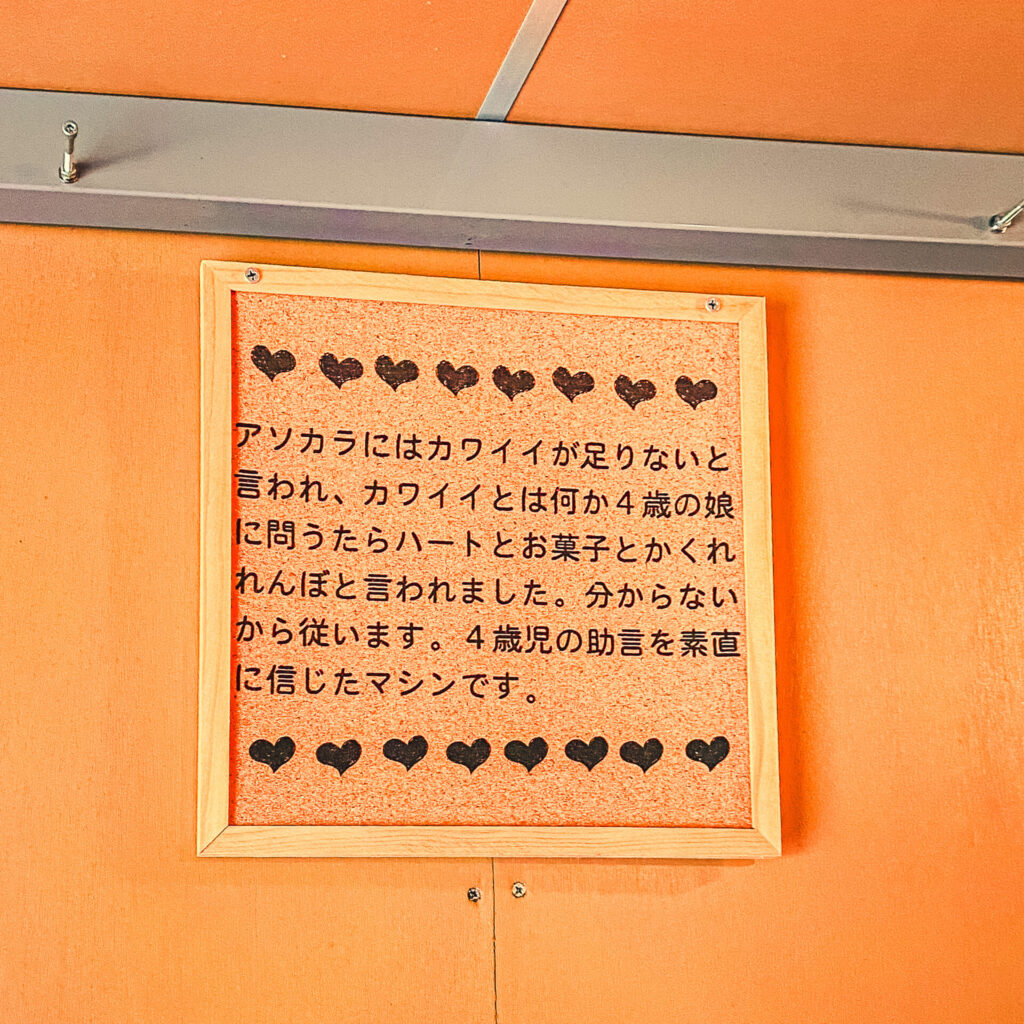 アソカラにはカワイイが足りないと
言われ、カワイイとは何か４歳の娘
に問うたらハートとお菓子とかくれ
れんぼと言われました。分からない
から従います。４歳児の助言を素直
に信じたマシンです。